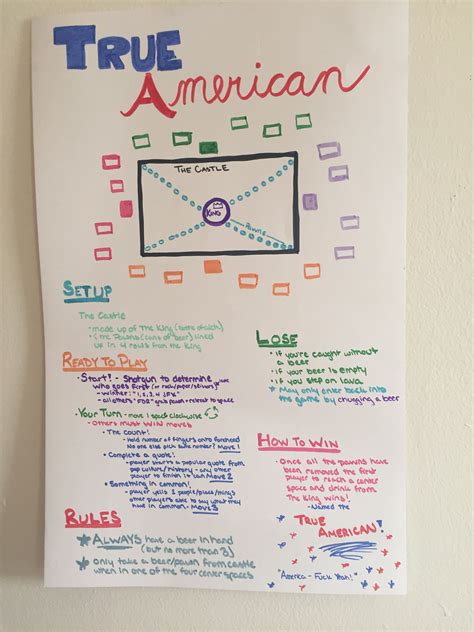 TRUE
American
THE CASTLE
KING
PAWNS
SETUP
The Castle
- made up of the King (
& the Pawns (cans of beer) lined
up in 4 rows from the King
READY TO PLAY
- Start! - Shotgun to determine
who goes first (or rock/paper/scissors)
- winner: "1, 2, 3, 4 JFK"
- all others: "FDR" - grab pawn + retreat to space
- Your Turn - move 1 space clockwise
- Others must WIN moves
- The count!
- hold number of fingers onto forehead
No one else pick same number? Move 1
- Complete a quote!
- player starts a popular quote from
pop culture/history - any other
player to finish it can Move 2
- Something in common!
- player yells 2 people/places/things
other players able to say what they
have in common - Move 3
RULES
ALWAYS have a beer in hand
(but no more than 3)
only take a beer/pawn from castle
when in one of the four center spaces
LOSE
• if you're caught without
a beer
• if your beer is empty
• if you step on lava
* May only enter back into
the game by chugging a beer
HOW TO WIN
• Once all the pawns have
been removed the first
player to reach a center
space and drink from
The King wins!
- Named the
TRUE
AMERICAN!
"America - Fuck Yeah!"